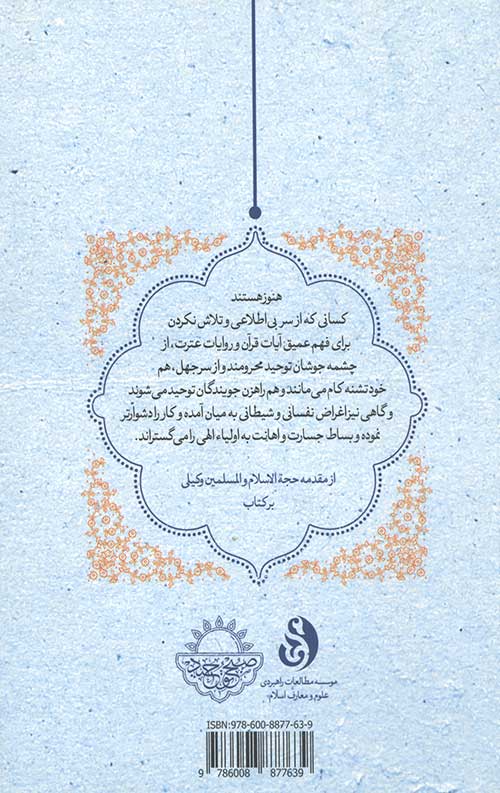 هنوز هستند
کسانی که از سر بی اطلاعی و تلاش نکردن
برای فهم عمیق آیات قرآن و روایات عترت، از
چشمه جوشان توحید محرومند و از سر جهل، هم
خود تشنه کام می‌مانند و هم راهزن جویندگان توحید می‌شوند
و گاهی نیز اغراض نفسانی و شیطانی به میان آمده و کار را دشوارتر
نموده و بساط جسارت و اهانت به اولیاء الهی را می‌گستراند.
از مقدمه حجة الاسلام والمسلمین وکیلی
بر کتاب
صبح توحید
موسسه مطالعات راهبردی
علوم و معارف اسلام
ISBN:978-600-8877-63-9
9 786008 877639